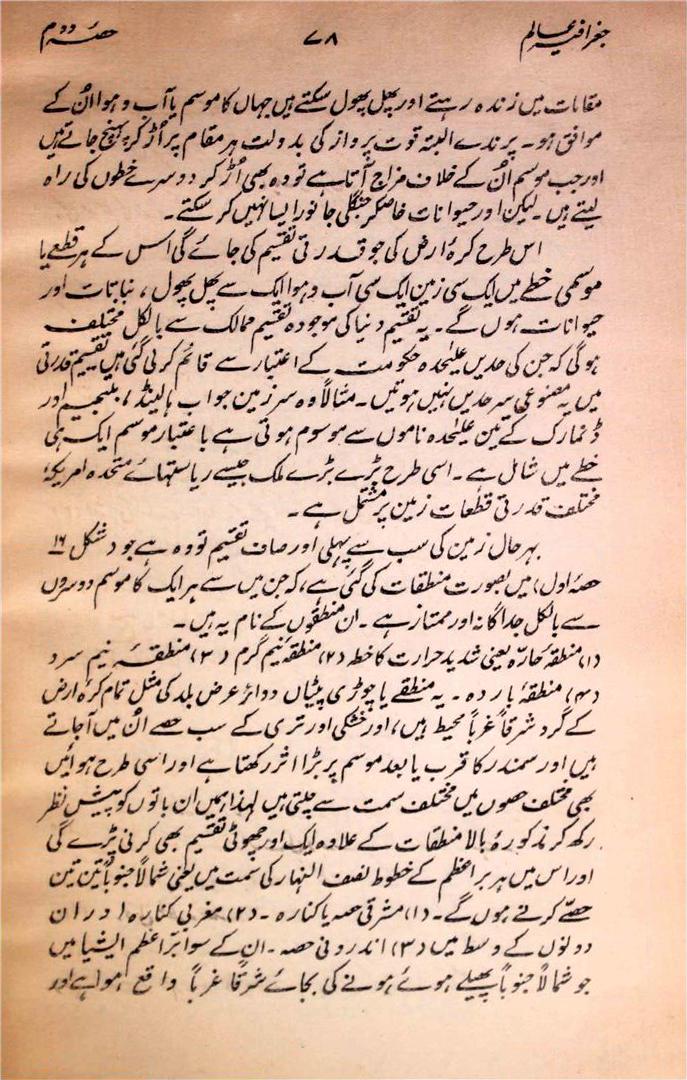 جغرافیہ عالم ۷۸ حصہ دوم
مقامات میں زندہ رہتے اور پھل پھول سکتے ہیں جہاں کا موسم یا آب و ہوا اُن کے
موافق ہو۔ پرندے البتہ قوت پرواز کی بدولت ہر مقام پر اُڑ کر پہنچ جاتے ہیں
اور جب موسم اُن کے خلاف مزاج آتا ہے تو وہ بھی اُڑ کر دوسرے خطوں کی راہ
لیتے ہیں۔ لیکن اور حیوانات خاصکر جنگلی جانور ایسا نہیں کر سکتے۔
اس طرح کرۂ ارض کی جو قدرتی تقسیم کی جائے گی اس کے ہر قطعے یا
موسمی خطے میں ایک سی زمین ایک سی آب و ہوا ایک سے پھل پھول، نباتات اور
حیوانات ہوں گے۔ یہ تقسیم دنیا کی موجودہ تقسیم ممالک سے بالکل مختلف
ہوگی کہ جن کی حدیں علیٰحدہ حکومت کے اعتبار سے قائم کر لی گئی ہیں تقسیم قدرتی
میں یہ مصنوعی سرحدیں نہیں ہوتیں۔ مثلاً وہ سرزمین جو اب ہالینڈ، بلیجیم اور
ڈنمارک کے تین علیٰحدہ ناموں سے موسوم ہوتی ہے باعتبار موسم ایک ہی
خطے میں شامل ہے۔ اسی طرح بڑے بڑے ملک جیسے ریاستہائے متحدہ امریکہ،
مختلف قدرتی قطعات زمین پر مشتمل ہے۔
بہر حال زمین کی سب سے پہلی اور صاف تقسیم تو وہ ہے جو (شکل ۱۶
حصہ اول) میں بصورت منطقات کی گئی ہے، کہ جن میں سے ہر ایک کا موسم دوسروں
سے بالکل جداگانہ اور ممتاز ہے۔ ان منطقوں کے نام یہ ہیں۔
(۱) منطقۂ حارّہ یعنی شدید حرارت کا خطہ (۲) منطقۂ نیم گرم (۳) منطقۂ نیم سرد
(۴) منطقۂ باردہ۔ یہ منطقے یا چوڑی پیٹیاں دوائر عرض بلد کی مثل تمام کرۂ ارض
کے گرد شرقاً غرباً محیط ہیں، اور خشکی اور تری کے سب حصے اُن میں آجاتے
ہیں اور سمندر کا قرب یا بعد موسم پر بڑا اثر رکھتا ہے اور اسی طرح ہوائیں
بھی مختلف حصوں میں مختلف سمت سے چلتی ہیں لہٰذا ہمیں ان باتوں کو پیش نظر
رکھ کر مذکورۂ بالا منطقات کے علاوہ ایک اور چھوٹی تقسیم بھی کرنی پڑے گی
اور اس میں ہر براعظم کے خطوط نصف النہار کی سمت میں یعنی شمالاً جنوباً تین تین
حصّے کرنے ہوں گے۔ (۱) مشرقی حصہ یا کنارہ۔ (۲) مغربی کنارہ اور ان
دونوں کے وسط میں (۳) اندرونی حصہ۔ ان کے سوا براعظم ایشیا میں
جو شمالاً جنوباً پھیلے ہوئے ہونے کی بجائے شرقاً غرباً واقع ہوا ہے اور